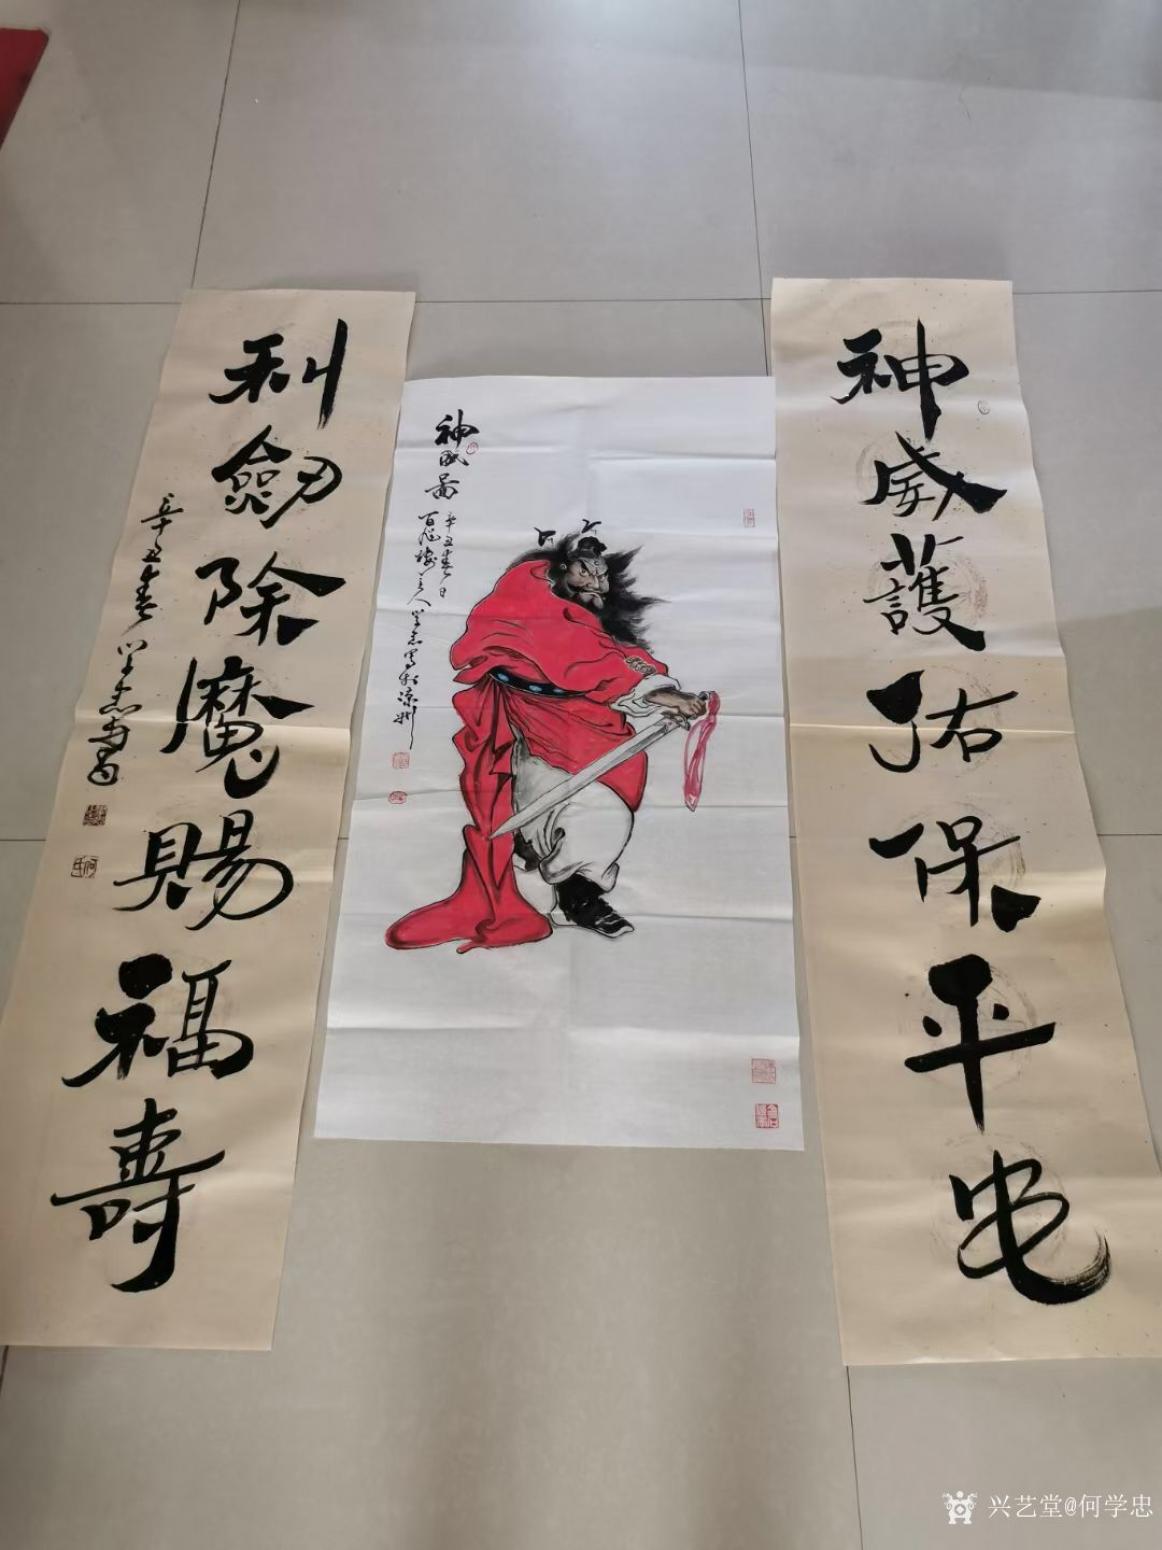 神威護佑保平安
神威圖
辛丑春日
主人学忠寫於涼州
利劒除魔賜福壽
辛丑春学忠書
兴艺堂@何学忠